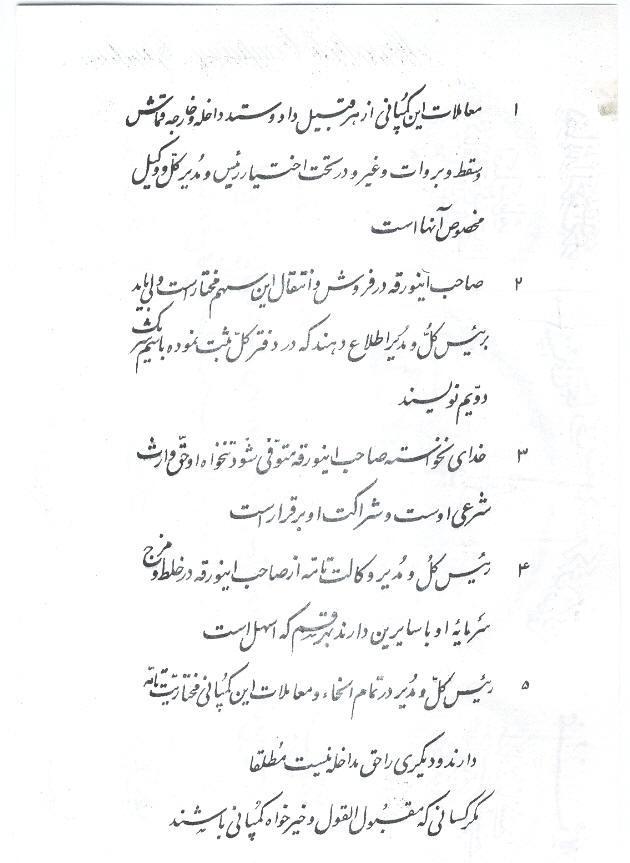 ۱ معاملات این کمپانی از هر قبیل داد و ستد داخله و خارجه قماش
و سقط و بروات و غیره در تحت اختیار رئیس و مدیر کلّ و وکیل
مخصوص آنها است
۲ صاحب اینورقه در فروش و انتقال این سهم مختار است ولی باید
برئیس کلّ و مدیر اطلاع دهند که در دفتر کلّ ثبت نموده باسم شریک
دویّم نویسند
۳ خدای نخواسته صاحب اینورقه متوّفی شود تنخواه او حقّ وارث
شرعی اوست و شراکت او برقرار است
۴ رئیس کلّ و مدیر وکالت تامّه از صاحب اینورقه در خلط و مزج
سرمایهٔ او با سایرین دارند بهر قسم که اسهل است
۵ رئیس کلّ و مدیر در تمام انحاء و معاملات این کمپانی مختاریّت تامّه
دارند و دیگری را حق مداخله نیست مُطلقا
مگر کسانی که مقبُول القول و خیر خواه کمپانی باشند